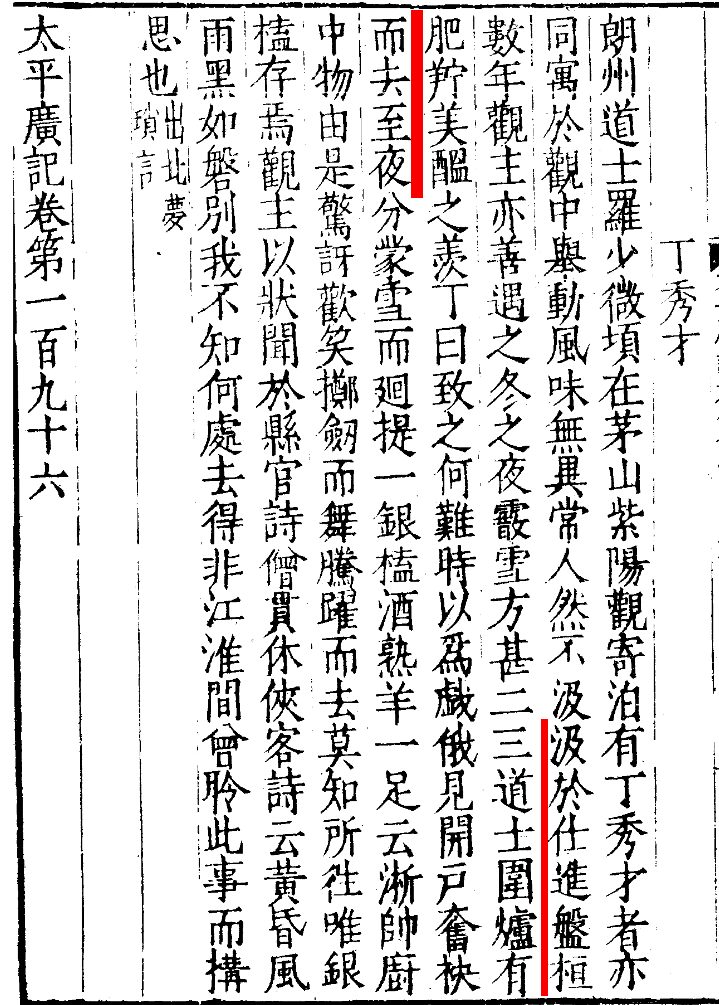 丁秀才
朗州道士羅少微頃在茅山紫陽觀寄泊有丁秀才者亦
同寓於觀中舉動風味無異常人然不汲汲於仕進盤桓
數年觀主亦善遇之冬之夜霰雪方甚二三道士圍爐有
肥羜美醞之羨丁曰致之何難時以爲戲俄見開戸奮袂
而去至夜分蒙雪而廻提一銀榼酒熟羊一足云淅帥廚
中物由是驚訝歡笑擲劒而舞騰躍而去莫知所徃唯銀
榼存焉觀主以狀聞於縣官詩僧貫休俠客詩云黃昏風
雨黑如磐別我不知何處去得非江淮間曾聆此事而構
思也出北夢瑣言
太平廣記卷第一百九十六